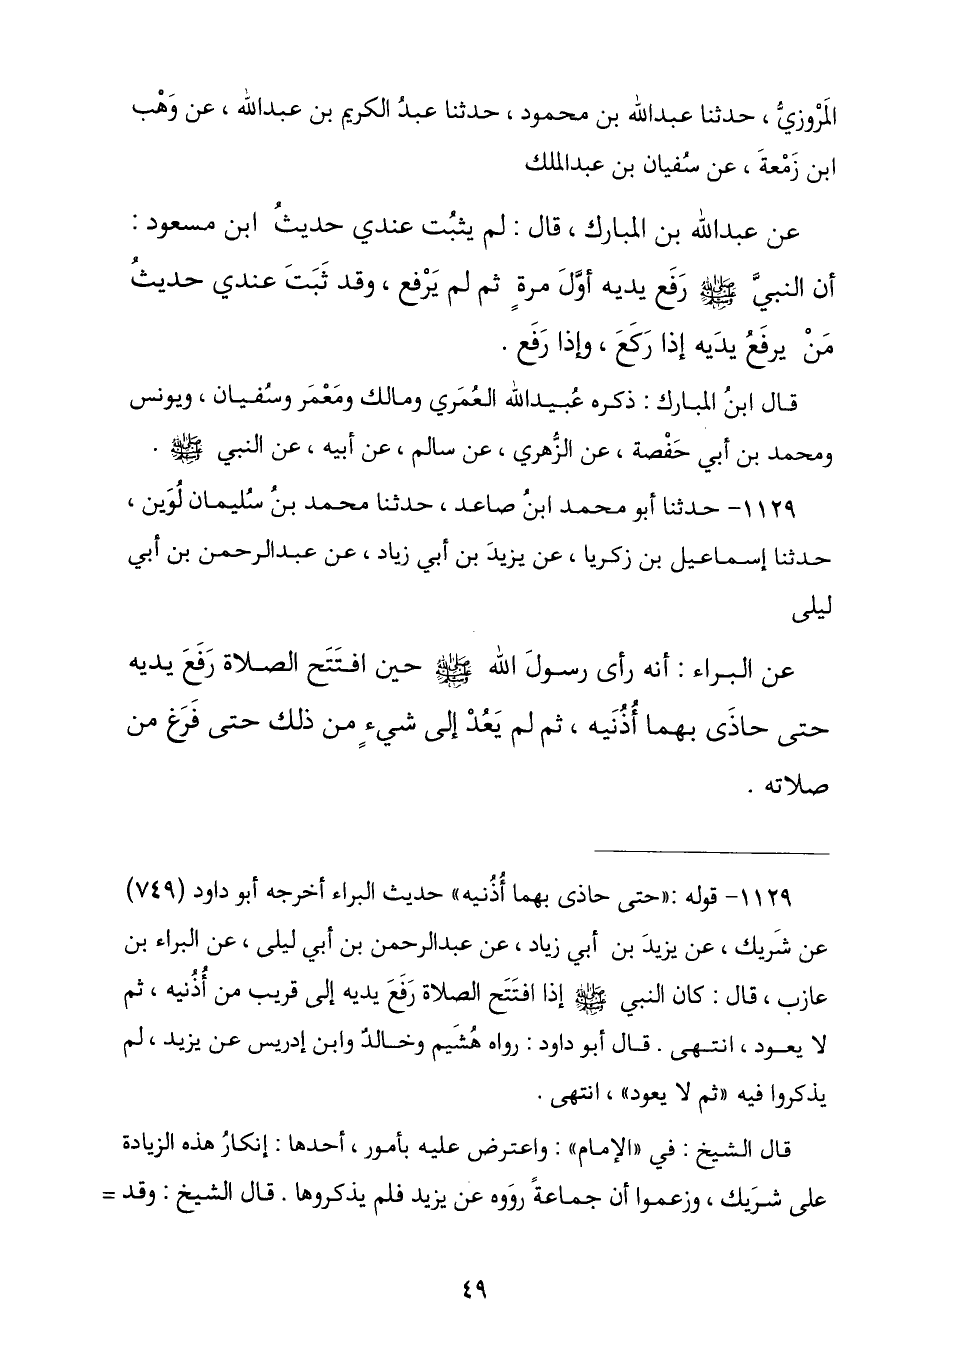 المَرْوزيُّ ، حدثنا عبدالله بن محمود ، حدثنا عبدُ الكريم بن عبدالله ، عن وَهْب
ابن زَمْعةَ ، عن سُفيان بن عبدالملك
عن عبدالله بن المبارك ، قال : لم يثبُت عندي حديثُ ابن مسعود :
أن النبيَّ ﷺ رَفَع يديه أوَّلَ مرةٍ ثم لم يَرْفع ، وقد ثَبَتَ عندي حديثُ
مَنْ يرفَعُ يدَيه إذا رَكَعَ ، وإذا رَفَع .
قال ابنُ المبارك : ذكره عُبيدالله العُمَري ومالك ومَعْمَر وسُفيان ، ويونس
ومحمد بن أبي حَفْصة ، عن الزُّهري ، عن سالم ، عن أبيه ، عن النبي ﷺ .
١١٢٩- حدثنا أبو محمد ابنُ صاعد ، حدثنا محمد بنُ سُليمان لُوَين ،
حدثنا إسماعيل بن زكريا ، عن يزيدَ بن أبي زياد ، عن عبدالرحمن بن أبي
ليلى
عن البراء : أنه رأى رسولَ الله ﷺ حين افتَتَح الصلاة رَفَعَ يديه
حتى حاذَى بهما أُذُنَيه ، ثم لم يَعُدْ إلى شيءٍ من ذلك حتى فَرَغ من
صلاته .
١١٢٩- قوله :«حتى حاذى بهما أُذُنيه» حديث البراء أخرجه أبو داود (٧٤٩)
عن شَريك ، عن يزيدَ بن أبي زياد ، عن عبدالرحمن بن أبي ليلى ، عن البراء بن
عازب ، قال : كان النبي ﷺ إذا افتَتَح الصلاة رَفَعَ يديه إلى قريب من أُذُنيه ، ثم
لا يعود ، انتهى . قال أبو داود : رواه هُشَيم وخالدٌ وابن إدريس عن يزيد ، لم
يذكروا فيه «ثم لا يعود» ، انتهى .
قال الشيخ : في «الإمام» : واعترض عليه بأمور ، أحدها : إنكارُ هذه الزيادة
على شَرَيك ، وزعموا أن جماعةً رؤوه عن يزيد فلم يذكروها . قال الشيخ : وقد =
٤٩